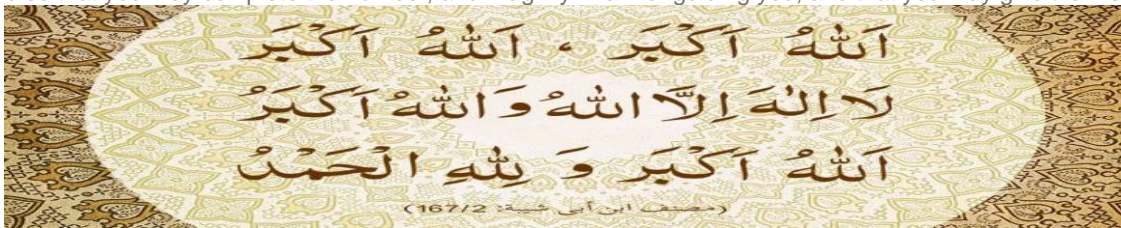 اَللّٰهُ اَكْبَر ، اَللّٰهُ اَكْبَر
لَا اِلٰهَ اِلَّا اللّٰهُ وَاللّٰهُ اَكْبَرُ
اَللّٰهُ اَكْبَر وَ لِلّٰهِ الْحَمْدُ
(مصنف ابن أبي شيبة: 167/2)